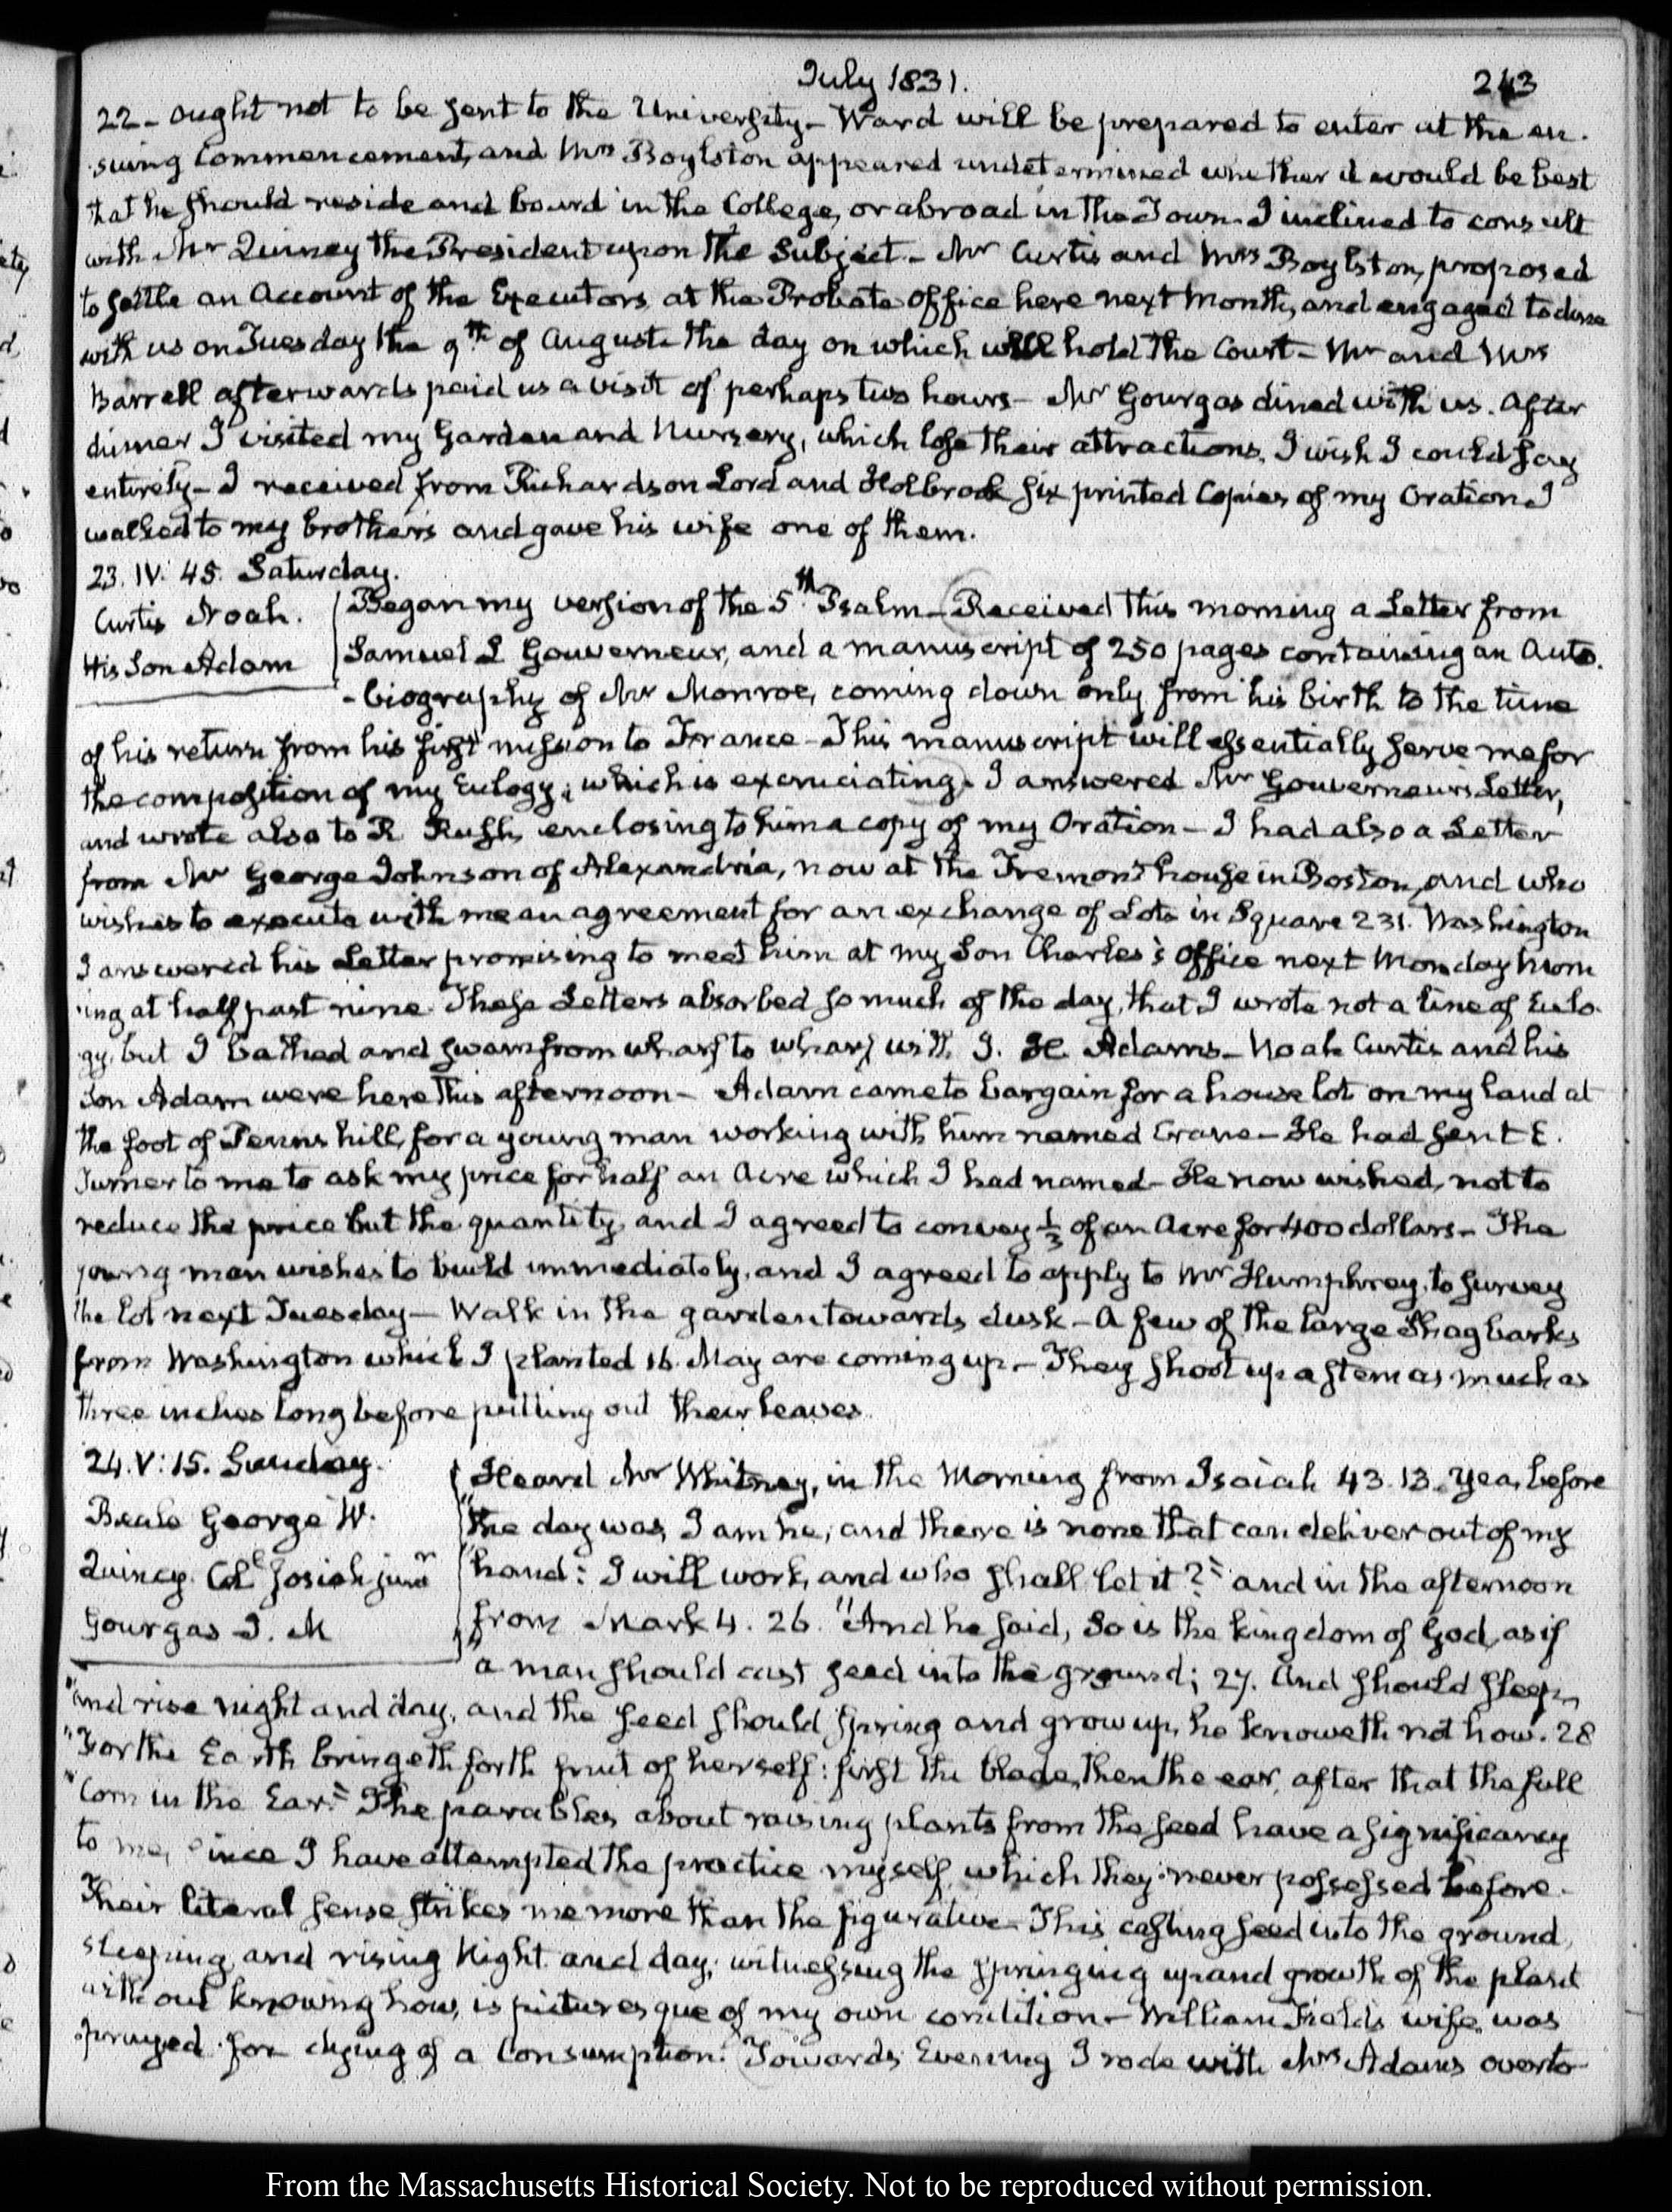 July 1831.
243
22 – ought not to be sent to the University – Ward will be prepared to enter at the en-
suing Commencement, and Mrs Boylston appeared undetermined whether it would be best
that he should reside and board in the College, or abroad in the Town. I inclined to consult
with Mr Quincy the President upon the Subject – Mr Curtis and Mrs Boylston, proposed
to settle an Account of the Executors, at the Probate Office here next Month, and engaged to dine
with us on Tuesday the 9th of August the day on which will hold the Court – Mr and Mrs
Barrell afterwards paid us a visit of perhaps two hours – Mr Gourgas dined with us. After
dinner I visited my Garden and Nursery, which lose their attractions, I wish I could say
entirely – I received from Richardson Lord and Holbrook six printed Copies of my Oration I
walked to my brother's and gave his wife one of them.
23. IV: 45. Saturday.
Curtis Noah.
His Son Adam
Began my version of the 5th Psalm – Received this morning a Letter from
Samuel L Gouverneur, and a manuscript of 250 pages containing an Auto-
-biography of Mr Monroe, coming down only from his birth to the time
of his return from his first mission to France – This manuscript will essentially serve me for
the composition of my Eulogy; which is excruciating. I answered Mr Gouverneur's Letter,
and wrote also to R Rush, enclosing to him a copy of my Oration – I had also a Letter
from Mr George Johnson of Alexandria, now at the Tremont house in Boston, and who
wishes to execute with me an agreement for an exchange of Lots in Square 231. Washington
I answered his Letter promising to meet him at my Son Charles's Office next Monday Morn
-ing at half past nine. These Letters absorbed so much of the day, that I wrote not a line of Eulo-
gy, but I bathed and swam from wharf to wharf with J. H. Adams – Noah Curtis and his
Son Adam were here this afternoon – Adam came to bargain for a house lot on my land at
the foot of Penns hill, for a young man working with him named Crane – He had sent E.
Turner to me to ask my price for half an Acre which I had named – He now wished, not to
reduce the price but the quantity, and I agreed to convey ⅓ of an Acre for 400 dollars – The
young man wishes to build immediately, and I agreed to apply to Mr Humphrey, to survey
the lot next Tuesday – Walk in the garden towards dusk – A few of the large Shagbarks
from Washington which I planted 16. May are coming up – They shoot up a stem as much as
three inches long before putting out their leaves.
24. V: 15. Sunday.
Beale George W.
Quincy Col Josiah junr
Gourgas J. M
Heard Mr Whitney, in the Morning from Isaiah 43.13. "Yea, before
"the day was, I am he; and there is none that can deliver out of my
"hand: I will work, and who shall let it?" and in the afternoon
from Mark 4. 26. "And he said, So is the kingdom of God, as if
"a man should cast seed into the ground; 27. And should sleep,
"and rise night and day, and the seed should spring and grow up, he knoweth not how. 28
"For the Earth bringeth forth fruit of herself: first the blade, then the ear, after that the full
"Corn in the Ear." The parables about raising plants from the seed have a significancy
to me, since I have attempted the practice myself, which they never possessed before.
Their literal sense strikes me more than the figurative – This casting seed into the ground,
sleeping and rising Night and day; witnessing the springing up and growth of the plant
without knowing how, is picturesque of my own condition – William Field's wife was
prayed for dying of a Consumption. Towards Evening I rode with Mrs Adams over to
From the Massachusetts Historical Society. Not to be reproduced without permission.